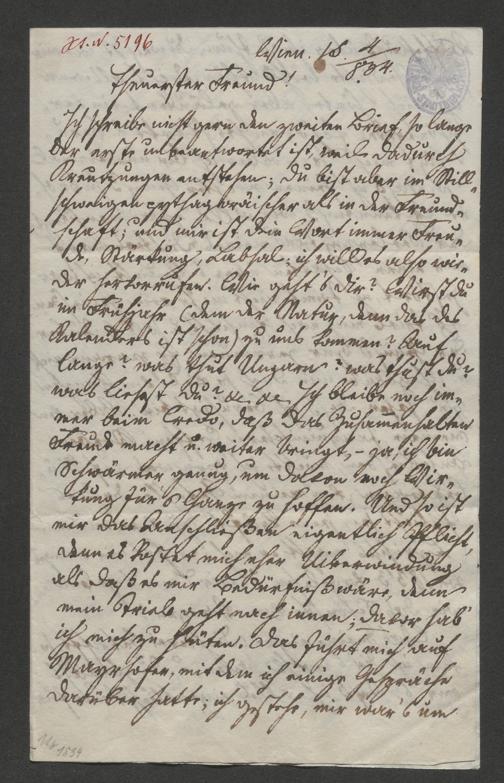 H.I.N. 5196
Wien. 18 4/834.
Theuerster Freund!
Ich schreibe nicht gern den zweiten Brief, so lange
der erste unbeantwortet ist, weil dadurch
Kreutzungen entstehen; du bist aber im Still-
schweigen pythagoräischer als in der Freund-
schaft; und mir ist dein Wort immer Freu-
de, Stärkung, Labsal: ich will es also wie-
der hervorrufen. Wie geht's dir? Wirst du
im Frühjahr (dem der Natur, denn das des
Kalenders ist schon) zu uns kommen? Auf
lange? was thut Ungarn? was thust du?
was liesest du? &c &c Ich bleibe noch im-
mer beim Credo, daß das Zusammenhalten
Freude macht u. weiter bringt, – ja ich bin
Schwärmer genug, um davon noch Wir-
kung für's Ganze zu hoffen. Und so ist
mir das Anschließen eigentlich Pflicht,
denn es kostet mich eher Ueberwindung
als daß es mir Bedürfniß wäre, denn
mein Trieb geht nach innen; davor hab'
ich mich zu hüten. Das führt mich auf
Mayrhofer, mit dem ich einige Gespräche
darüber hatte; ich gestehe, mir war's um
1834